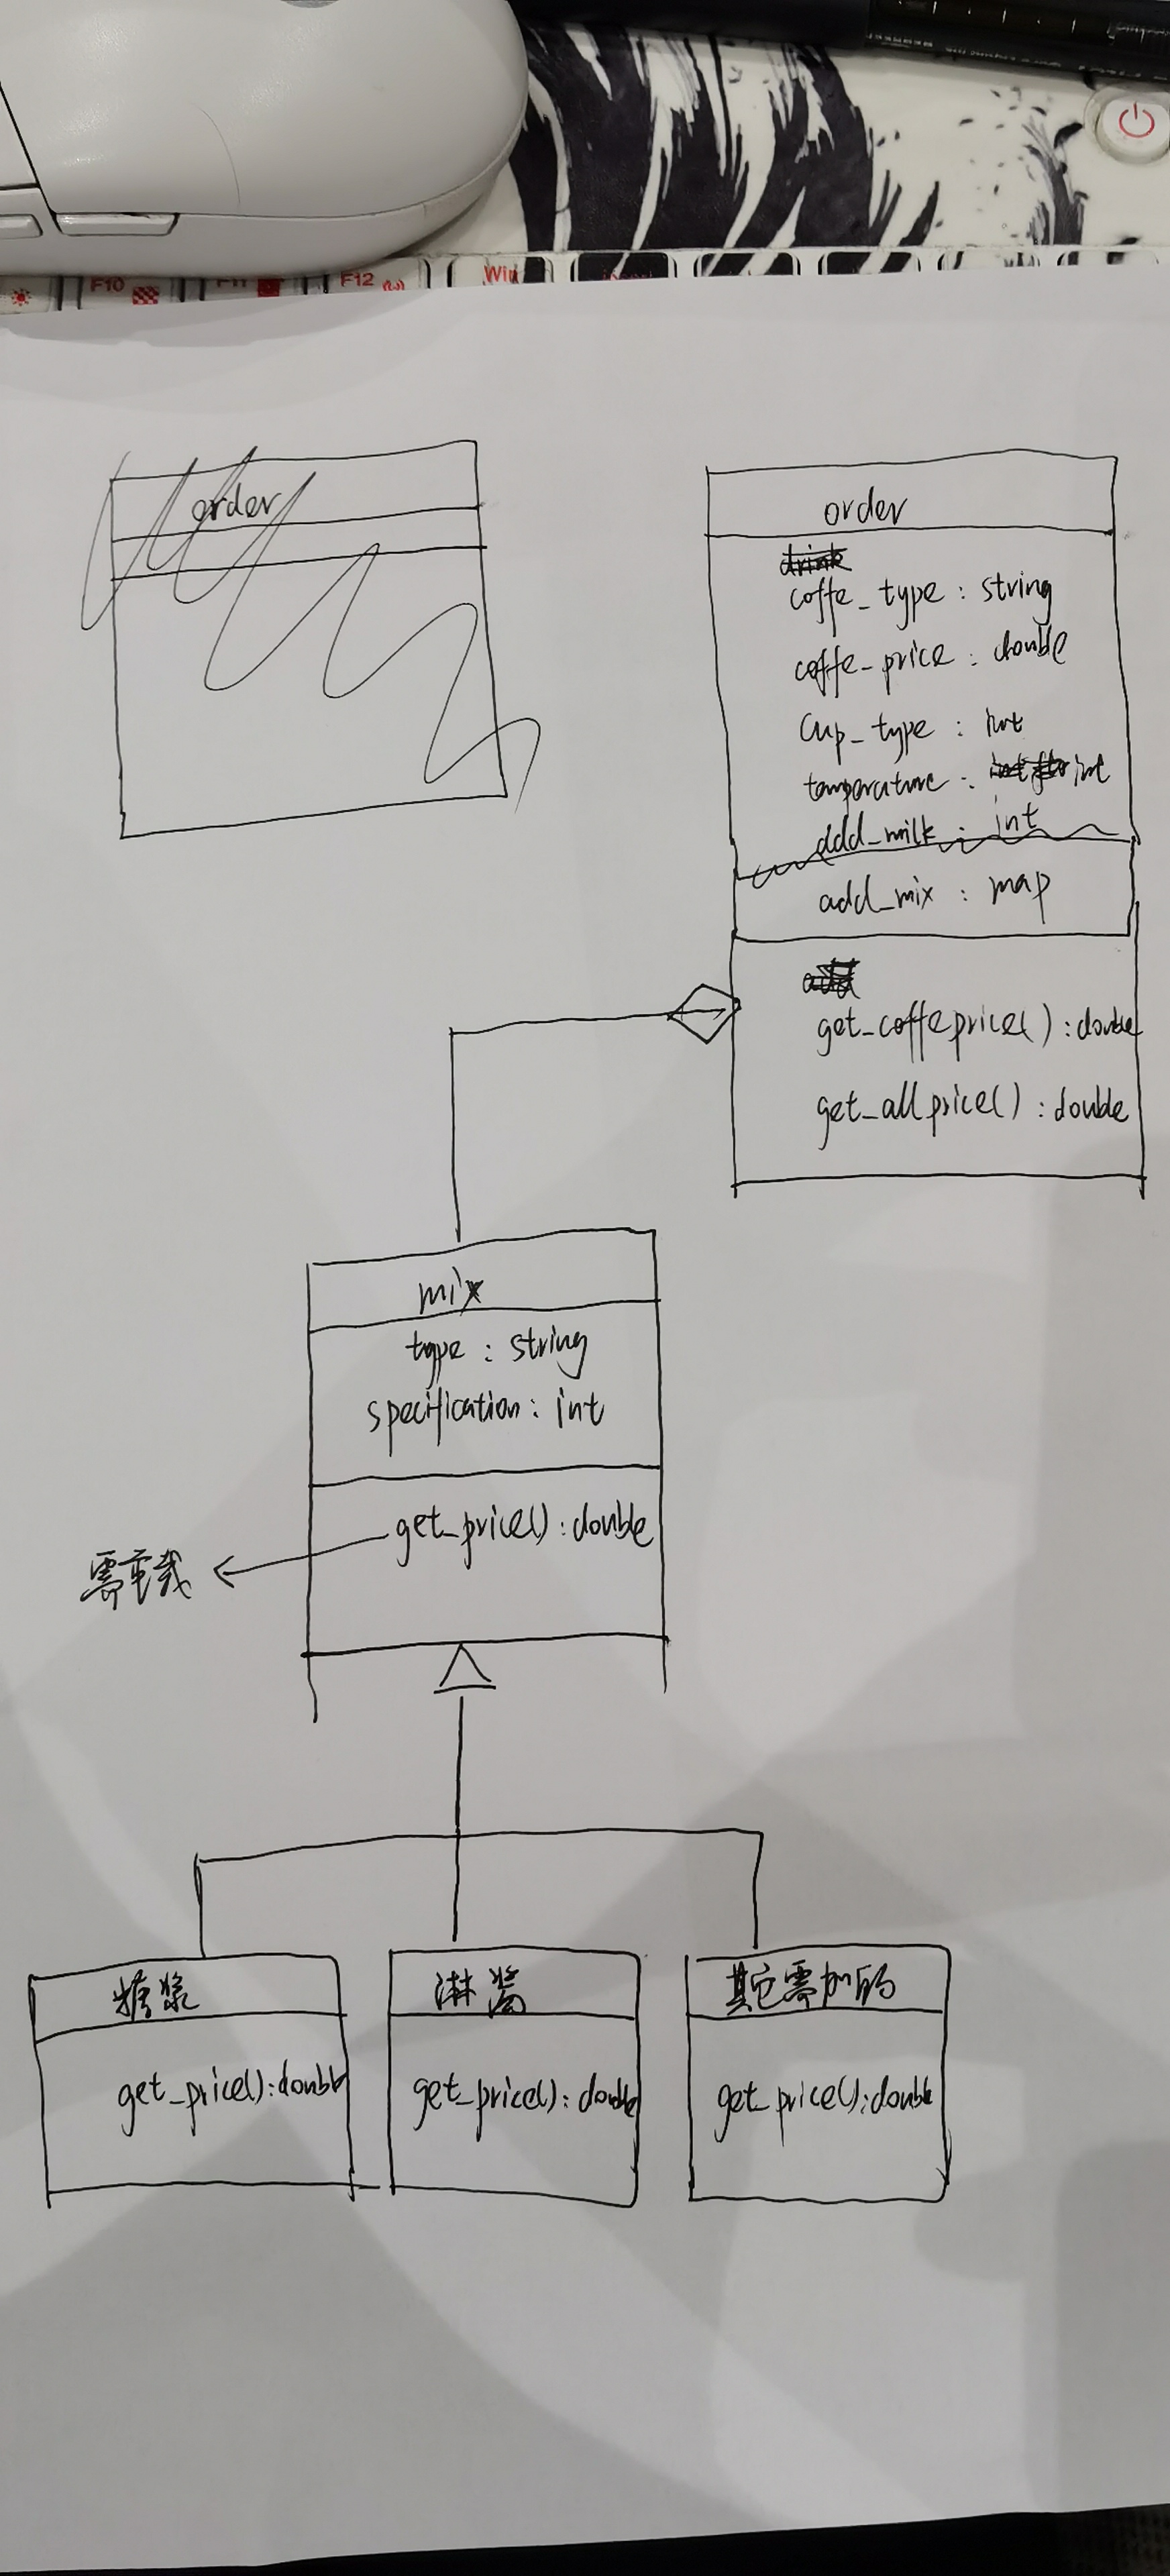 F10
F11
F12
Win
order
order
drink
coffe_type : string
coffe_price : double
cup_type : int
temperature : int
add_milk : int
add_mix : map
add
get_coffeprice() : double
get_allprice() : double
mix
type : string
specification : int
get_price() : double
需重载
糖浆
淋酱
其它需加的
get_price() : double
get_price() : double
get_price() : double